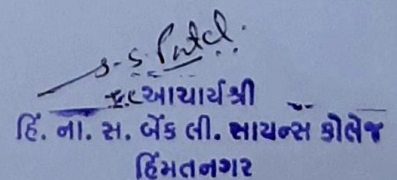 S. S. Patel
I/C આચાર્યશ્રી
હિં. ના. સ. બેંક લી. સાયન્સ કોલેજ
હિંમતનગર